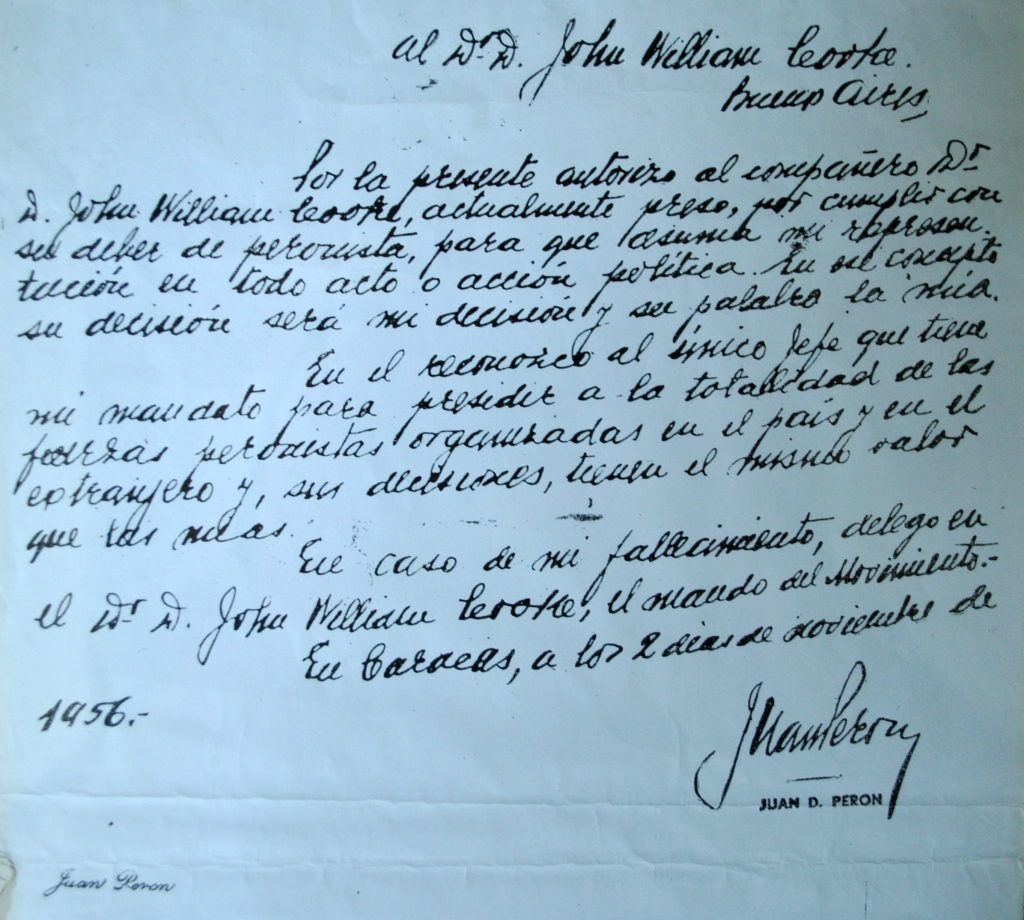 al Dr. D. John William Cooke.
Buenos Aires,
Por la presente autorizo al compañero Dr.
D. John William Cooke, actualmente preso, por cumplir con
su deber de peronista, para que asuma mi represen-
tación en todo acto o acción política. En ese concepto
su decisión será mi decisión y su palabra la mía.
En el reconozco al único Jefe que tiene
mi mandato para presidir a la totalidad de las
fuerzas peronistas organizadas en el país y en el
extranjero y, sus decisiones, tienen el mismo valor
que las mías.
En caso de mi fallecimiento, delego en
el Dr. D. John William Cooke, el mando del Movimiento.-
En Caracas, a los 2 dias de noviembre de
1956.-
Juan Peron
JUAN D. PERON
Juan Peron